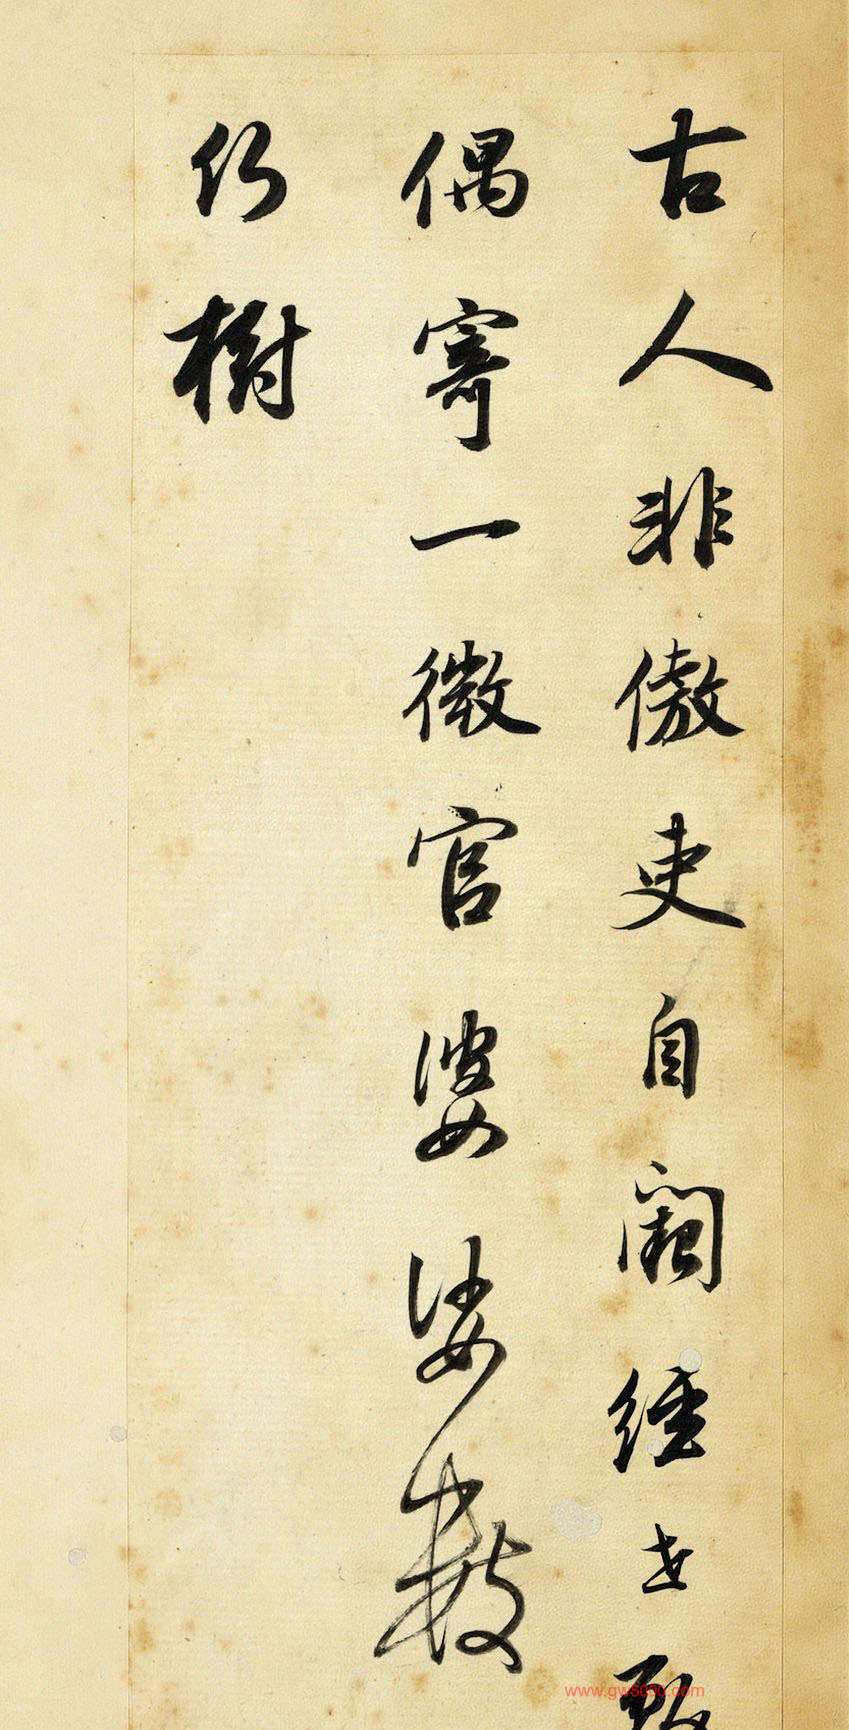 古人非傲吏自闕經世
偶寄一微官婆娑數
行樹